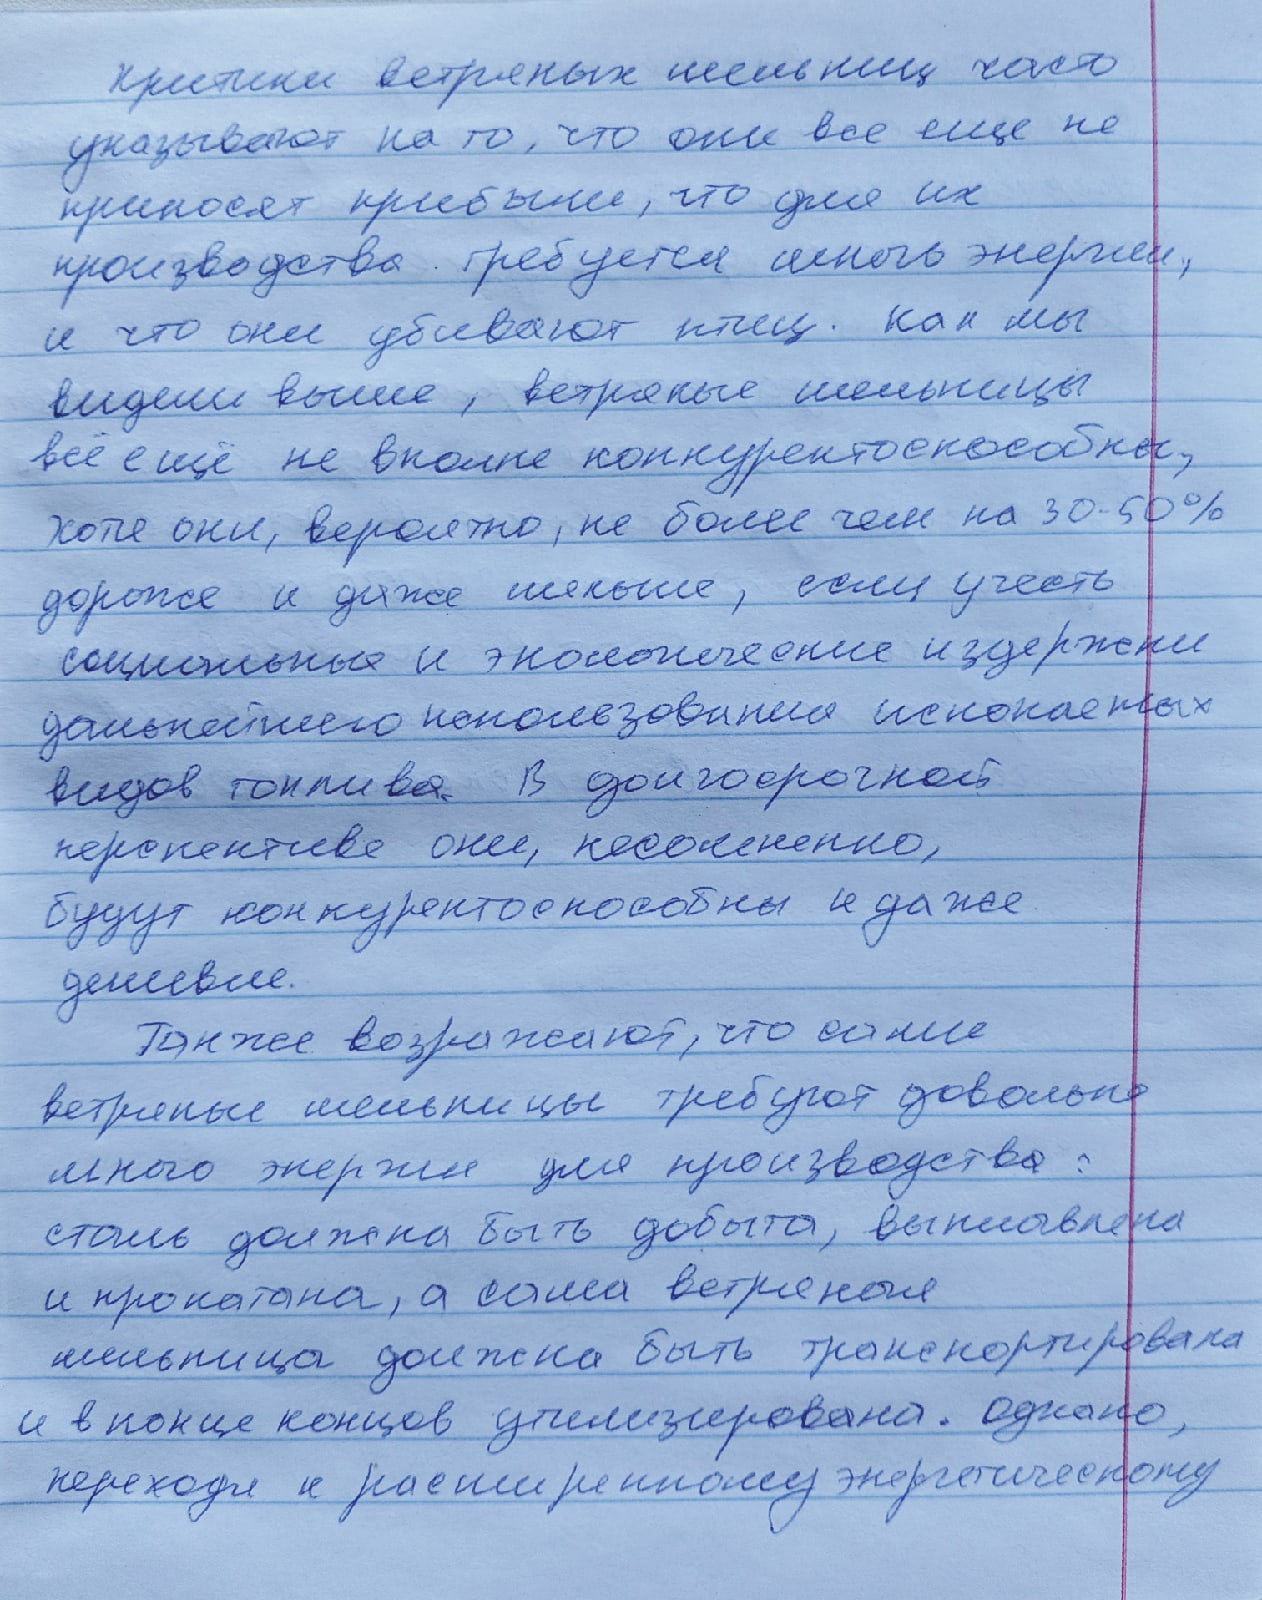 Критики ветряных мельниц часто
указывают на то, что они все еще не
приносят прибыли, что для их
производства требуется много энергии,
и что они убивают птиц. Как мы
видели выше, ветряные мельницы
всё ещё не вполне конкурентоспособны,
хотя они, вероятно, не более чем на 30-50%
дороже и даже меньше, если учесть
социальные и экологические издержки
дальнейшего использования ископаемых
видов топлива. В долгосрочной
перспективе они, несомненно,
будут конкурентоспособны и даже
дешевле.
Также возражают, что сами
ветряные мельницы требуют довольно
много энергии для производства:
сталь должна быть добыта, выплавлена
и прокатана, а сама ветряная
мельница должна быть транспортирована
и в конце концов утилизирована. Однако,
переходя к расширенному энергетическому